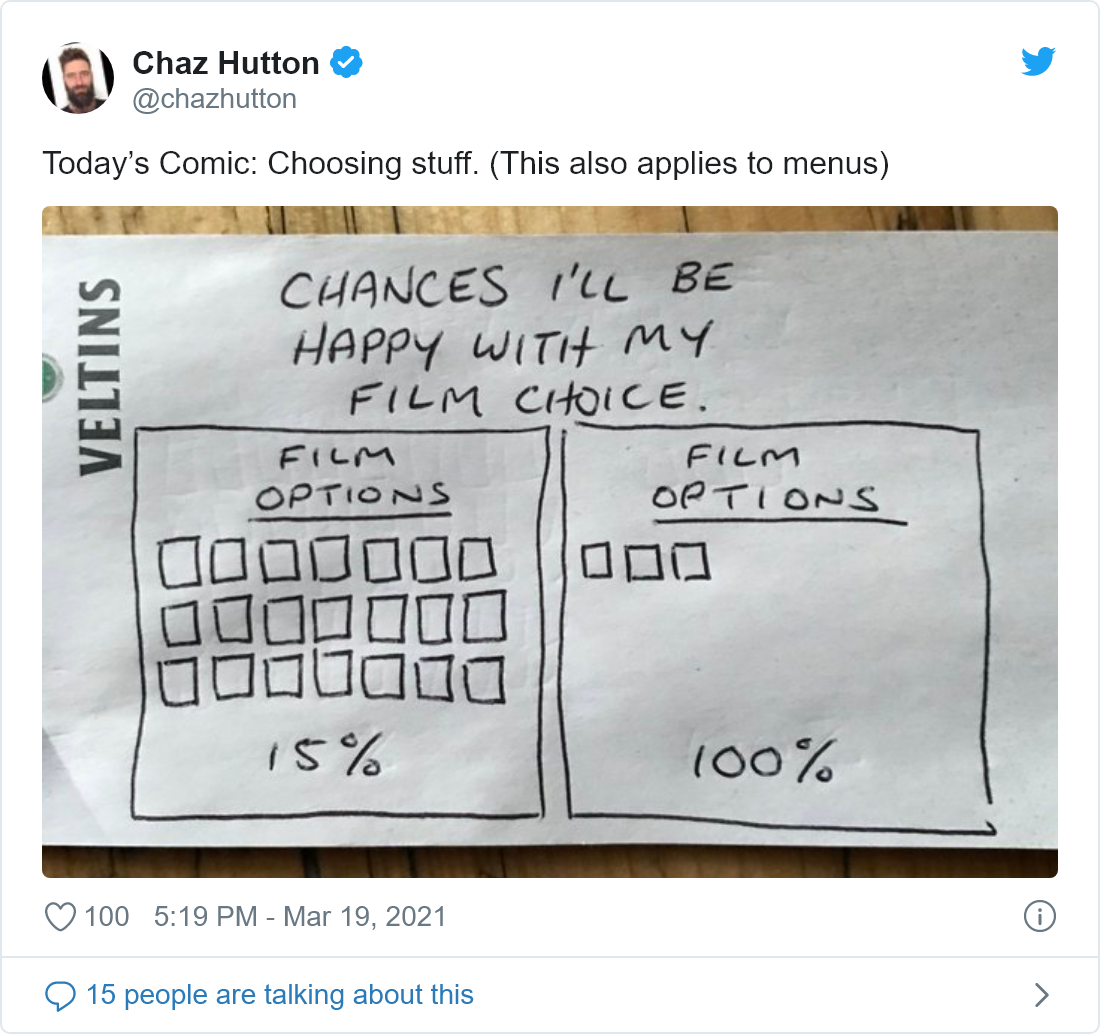 Chaz Hutton
@chazhutton
Today’s Comic: Choosing stuff. (This also applies to menus)
VELTINS
CHANCES I'LL BE
HAPPY WITH MY
FILM CHOICE.
FILM
OPTIONS
15%
FILM
OPTIONS
100%
100 5:19 PM - Mar 19, 2021
15 people are talking about this